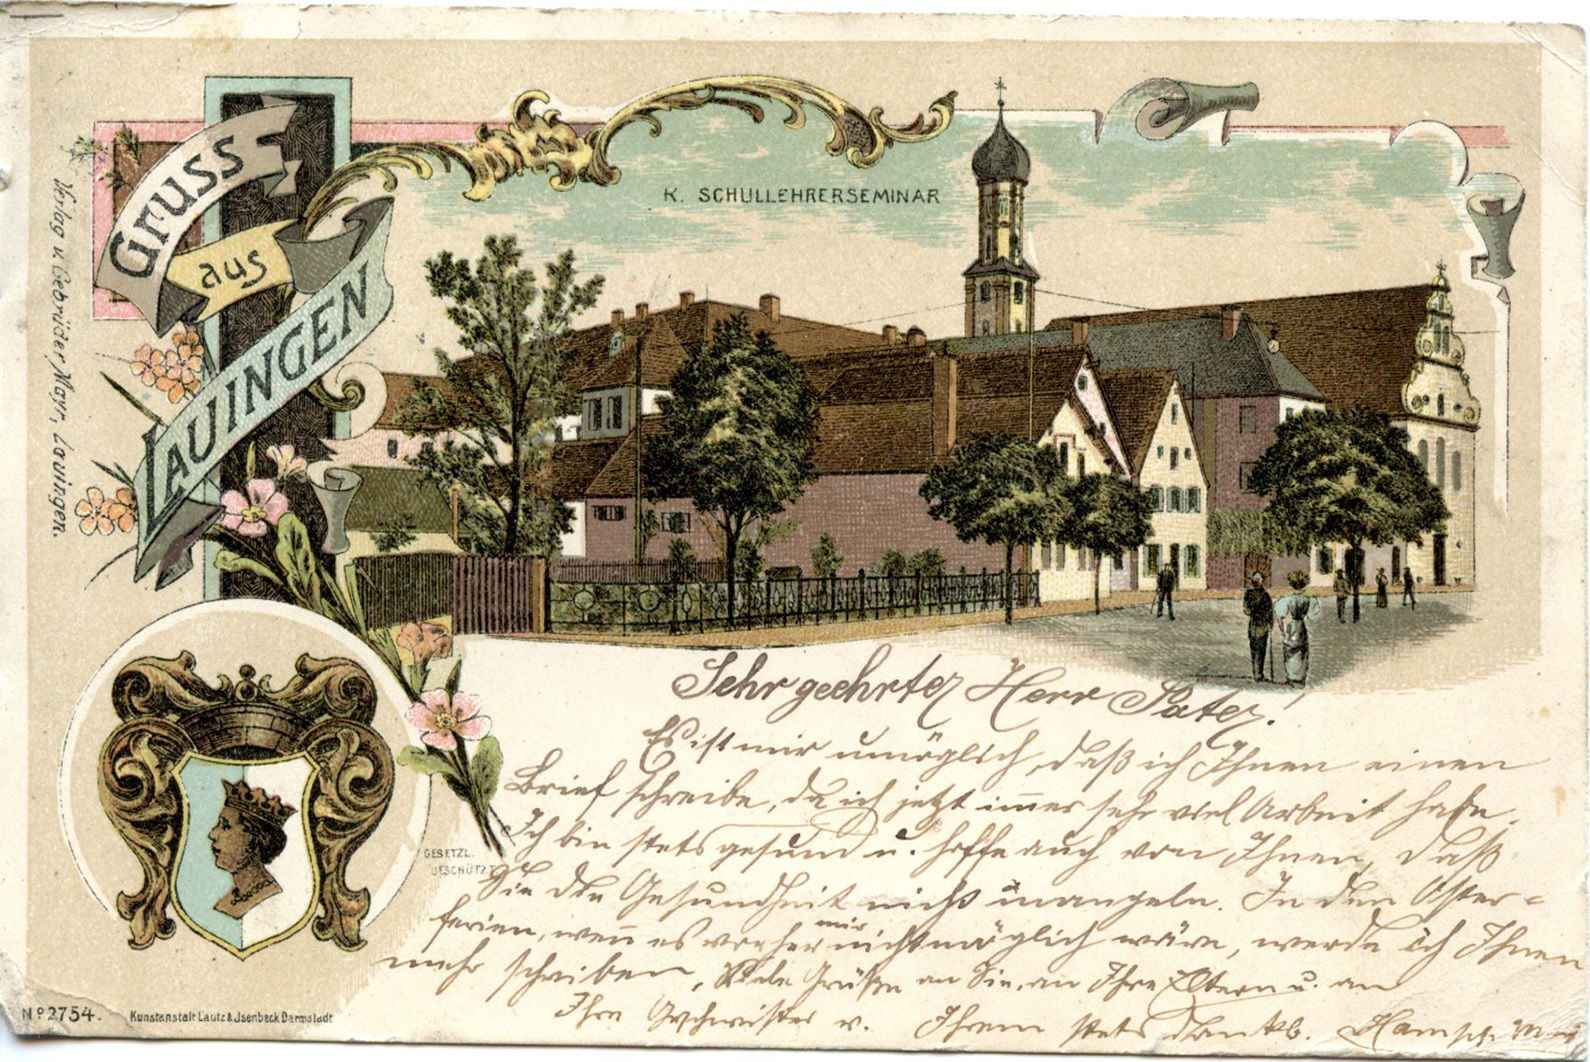 Gruss
aus
LAUINGEN
K. SCHULLEHRERSEMINAR
Verlag v. Gebrüder Mayr, Lauingen.
GESETZL.
GESCHÜTZT
Nº 2754.
Kunstanstalt Lautz & Jsenbeck Darmstadt
Sehr geehrter Herr Pater!
Es ist mir unmöglich, daß ich Ihnen einen
Brief schreibe, da ich jetzt immer sehr viel Arbeit habe.
Ich bin stets gesund u. hoffe auch von Ihnen, daß
Sie die Gesundheit nicht mangeln. In den Oster-
ferien, wenn es vorher mir nicht möglich wäre, werde ich Ihnen
mehr schreiben, Viele Grüße an Sie, an Ihre Eltern u. an
Ihre Geschwister v. Ihrem stets dankb.